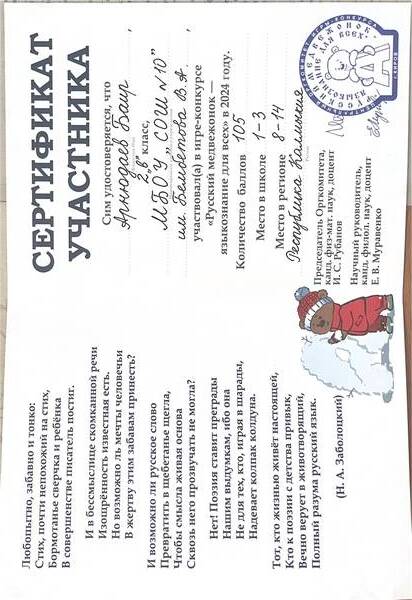 СЕРТИФИКАТ
УЧАСТНИКА
Сим удостоверяется, что
Арнюдаев Баир
2 „в" класс,
МБОУ „СОШ №10"
им Бембетова В.А.
участвовал(а) в игре-конкурсе
«Русский медвежонок —
языкознание для всех» в 2024 году.
Количество баллов 105
Место в школе 1-3
Место в регионе 8-14
Республика Калмыкия
Председатель Оргкомитета,
канд. физ-мат. наук, доцент
И. С. Рубанов
Научный руководитель,
канд. филол. наук, доцент
Е. В. Муравенко
Любопытно, забавно и тонко:
Стих, почти непохожий на стих,
Бормотанье сверчка и ребёнка
В совершенстве писатель постиг.
И в бессмыслице скомканной речи
Изощрённость известная есть.
Но возможно ль мечты человечьи
В жертву этим забавам принесть?
И возможно ли русское слово
Превратить в щебетанье щегла,
Чтобы смысла живая основа
Сквозь него прозвучать не могла?
Нет! Поэзия ставит преграды
Нашим выдумкам, ибо она
Не для тех, кто, играя в шарады,
Надевает колпак колдуна.
Тот, кто жизнью живёт настоящей,
Кто к поэзии с детства привык,
Вечно верует в животворящий,
Полный разума русский язык.
(Н. А. Заболоцкий)